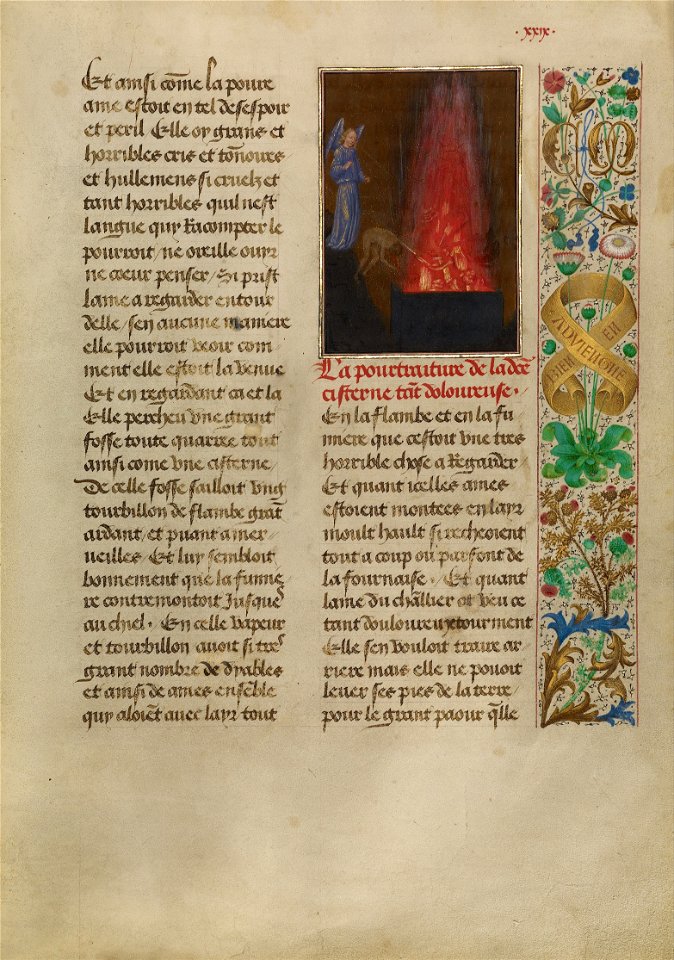 · xxix ·
Et ainsi cõme la poure
ame estoit en tel desespoir
et peril Elle oy grans et
horribles cris et tõnoires
et hullemens si cruelz et
tant horribles quil nest
langue quy Racompter le
pourroit / ne oreille ouyr
ne coeur penser / Si prist
lame a regarder entour
delle / sen aucune maniere
elle pourroit veoir com¬
ment elle estoit la venue
Et en regardant ca et la
Elle percheu vne grant
fosse toute quarree tout
ainsi come vne cisterne /
De celle fosse sailloit vng
tourbillon de flambe grãt
ardant / et puant a mer¬
ueilles / Et luy sembloit
bonnement que la fumee
re contremontoit Jusques
au chiel · En celle vapeur
et tourbillon auoit si tres
grant nombre de dyables
et ainsi de ames ensẽble
quy aloiẽt auec layr tout
La pourtraiture de la dce
cisterne tãt doloureuse ·
En la flambe et en la fu
miere que cestoit vne tres
horrible chose a Regarder
Et quant icelles ames
estoient montees en layr
moult hault si recheoient
tout a coup ou parfont de
la fournaise · Et quant
lame du chĩlier ot veu ce
tant douloureux tourment
Elle sen vouloit traire ar
riere mais elle ne pouoit
leuer ses pies de la terre /
pour le grant paour q̃lle
CM
BIEN EN
ADVIENGNE